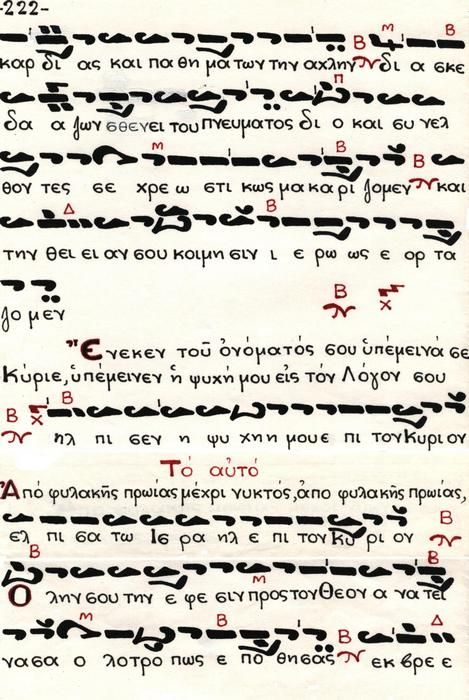 -222-
καρ δι ας και πα θη μα των την αχλην δι α σκε
δα α ζων σθενει του πνευματος δι ο και συ νελ
θον τες σε χρε ω στι κως μα κα ρι ζομεν και
την θει ει αν σου κοιμη σιν ι ε ρω ως ε ορ τα
ζο μεν
Ἕνεκεν τοῦ ὀνόματός σου ὑπέμεινά σε
Κύριε, ὑπέμεινεν ἡ ψυχή μου εἰς τόν Λόγον σου
ηλ πι σεν η ψυ χη η μου ε πι τον Κυρι ον
Τό αὐτό
Ἀπό φυλακῆς πρωίας μέχρι νυκτός, ἀπο φυλακῆς πρωίας,
ελ πι σα τω Ισ ρα ηλ ε πι τον Κυ ρι ον
Ο λην σου την ε φε σιν προς τον Θεον α να τει
νασα ο λοτρο πως ε πο θησας εκ βρε ε